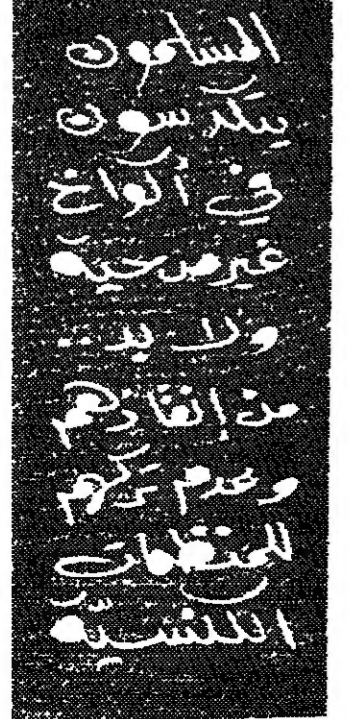 المسلمون
يتكدسون
في أكواخ
غير صحية
ولا بد ..
من إنقاذهم
وعدم تركهم
للمنظمات
الكنسية